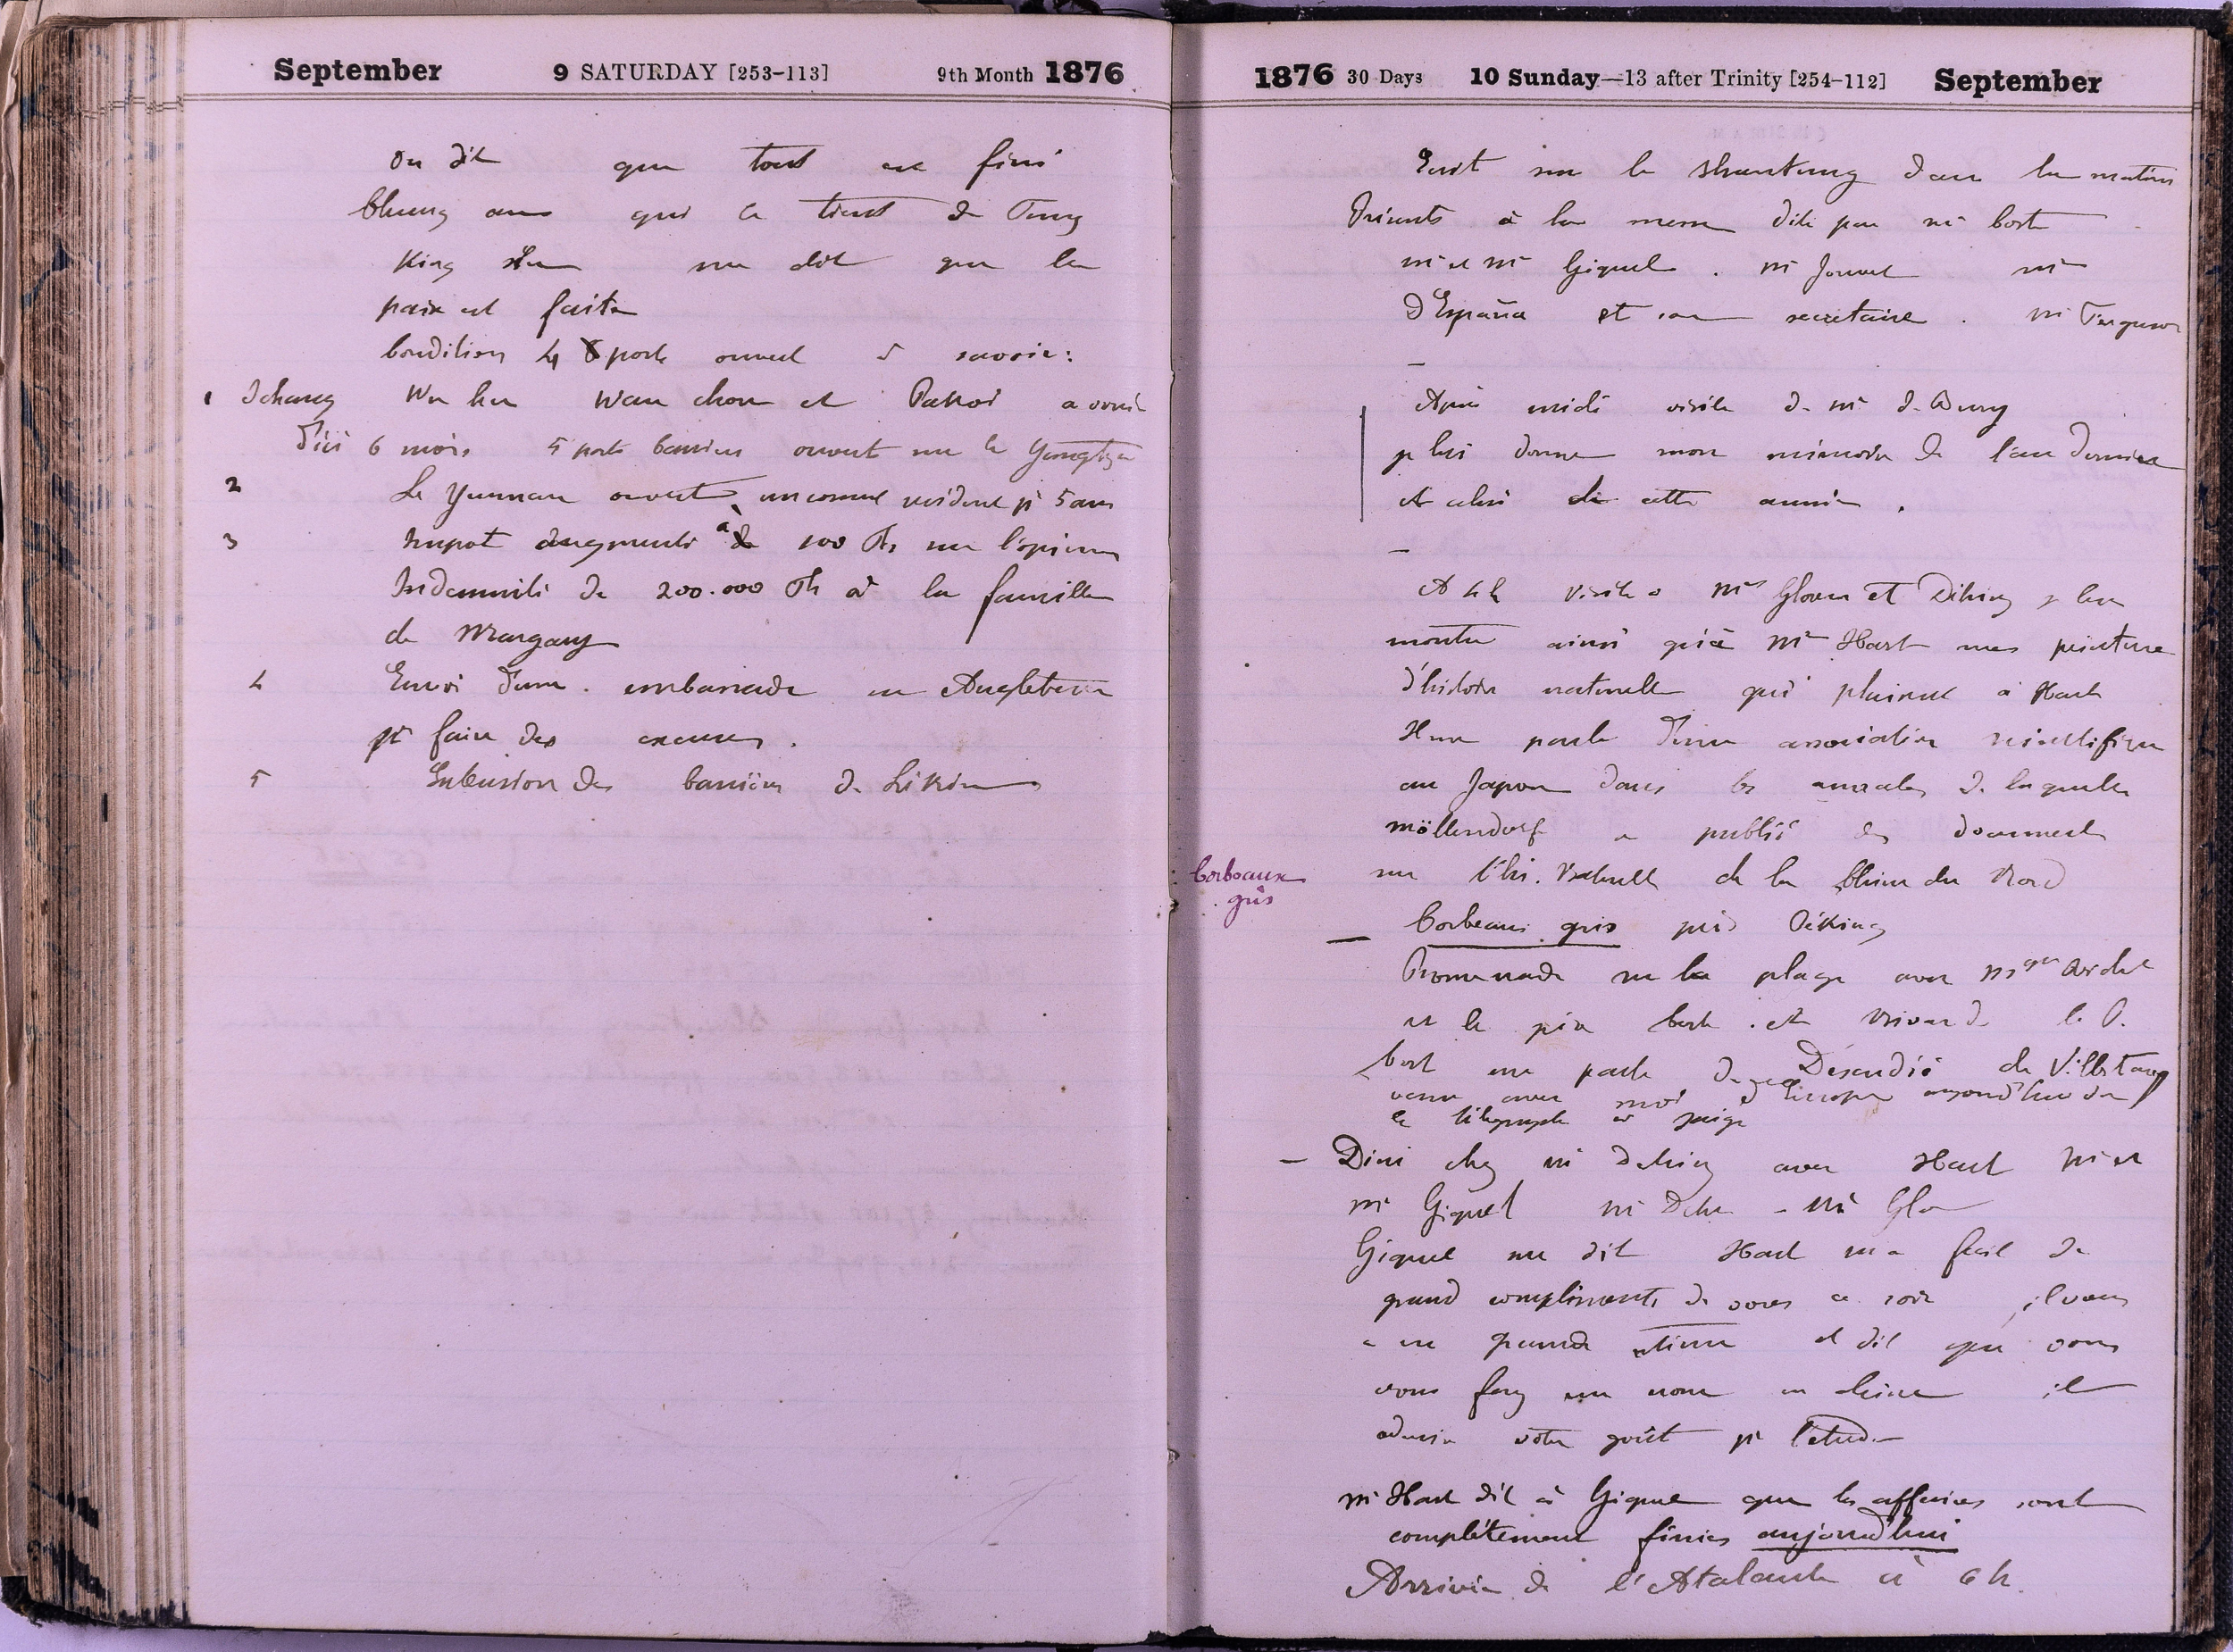 September 9 SATURDAY [253-113] 9th Month 1876
on dit que tout est fini
Chung ans qui le tient de Tung
King shu me dit que la
paix est faite
Conditions 4 port ouvert à savoir:
1 Ichang Wu hu Wan chou et Pakoi a ouvrir
d'ici 6 mois 5 ports barrières ouvert sur le Yangtze
2 Le Yunnan ouvert, un consul resident pr 5 ans
3 Impot augmenté à 100 Tls sur l'opium
Indemnité de 200.000 Tls à la famille
de Margary
4 Envoi d'une embassade en Angleterre
pr faire des excuses.
5 Extension des barrières de Likin
1876 30 Days 10 Sunday—13 after Trinity [254-112] September
Ecrit sur le Shantung dans la matin
Présents à la messe dite par mr Cort
mr et me Giquel. mr Jouvet mr
d'España et son secretaire. mr Ferguson
—
Après midi visite de mr de Bury
je lui donne mon mémoire de l'an dernier
et celui de cette année.
—
A 4h visite a Mrs Glover et Détring je leur
montre ainsi qu'à Mr Hart mes peinture
d'histoire naturelle qui plaisent à Hart
Il me parle d'une association scientifique
au Japon dans les annales de laquelle
möllendorf a publié des documents
sur l'his. naturelle de la Chine du Nord
Corbeaux gris
— Corbeaux gris près Péking
Promenade sur la plage avec Mgr
et le père Cort et le P.
Cort me parle de Descudié de Villstang
venu avec moi d'Europe aujourd'hui
le télégraphe à
— Dine chez mr Detring avec Hart mr et
me Giquel mr Detr - Mr Glo
Giquel me dit Hart m'a fait de
grand compliments de vous ce soir il vous
a en grande estime et dit que vous
vous fery un nom en chine il
admire votre goût pr l'etude
mr Hart dit à Giquel que les affaires sont
complétement finies aujourd'hui
Arrivée de l'Atalante à 6h.